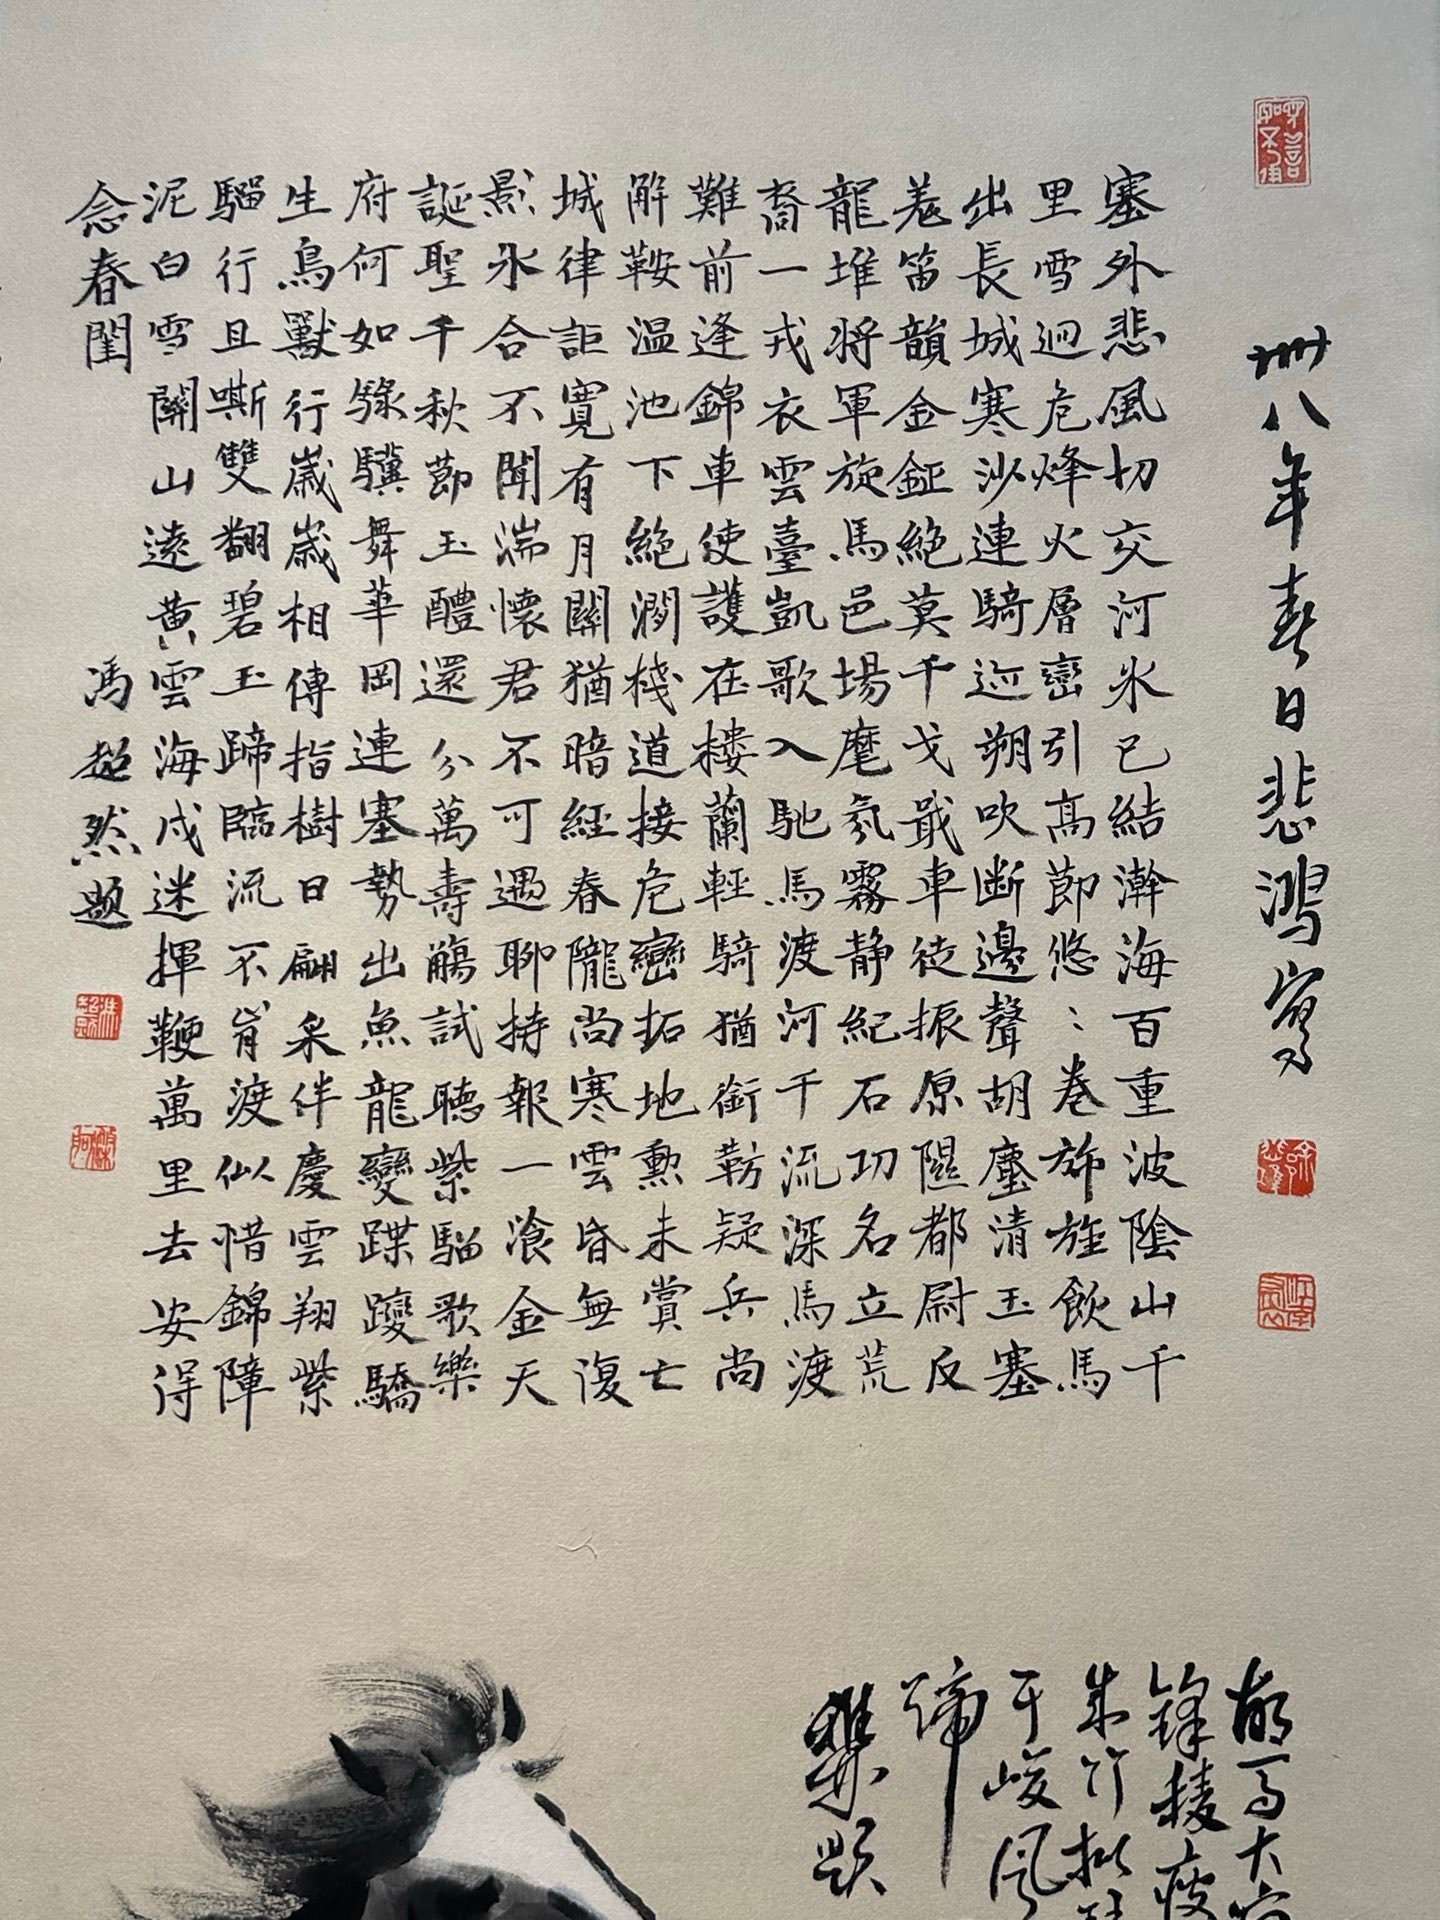 卌八年春日悲鴻寫
塞外悲風切交河氷已結瀚海百重波陰山千
里雪迥危烽火層巒引高節悠〻卷旆旌飲馬
出長城寒沙連騎迹朔吹断邊聲胡塵清玉塞
羌笛韻金鉦絶漠千戈戢車徒振原隰都尉反
龍堆將軍旋馬邑場麾氛霧静紀石功名立荒
裔一戎衣雲臺凱歌入馳馬渡河千流深馬渡
難前逢錦車使護在樓蘭輕騎猶銜勒疑兵尚
解鞍温池下絶澗棧道接危巒拓地勳未賞亡
城律詎寬有月關猶暗經春隴尚寒雲昏無復
影氷合不聞湍懷君不可遇聊持報一飡金天
誕聖千秋節玉醴還分萬壽觴試聽紫騮歌樂
府何如騄驥舞華岡連塞勢出魚龍變蹀躞驕
生鳥獸行歲歲相傳指樹日翩采伴慶雲翔紫
騮行且嘶雙翻碧玉蹄臨流不肯渡似惜錦障
泥白雪關山遠黄雲海戍迷揮鞭萬里去安得
念春閨
馮超然題
大
鋒稜瘦
朱竹批
千峻風
蹄
題